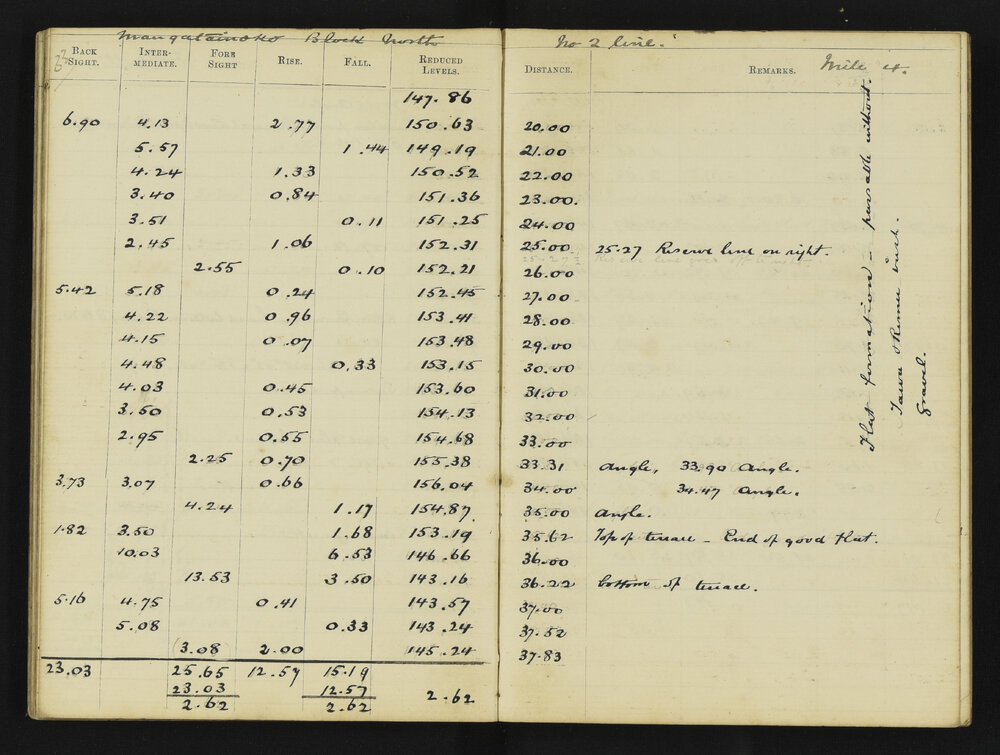 Mangatainoko Block North No 2 line.
33
BACK SIGHT. INTER-MEDIATE. FORE SIGHT RISE. FALL. REDUCED LEVELS. DISTANCE. REMARKS. Mile 4.
147.86
6.90 4.13 2.77 150.63 20.00
5.57 1.44 149.19 21.00
4.24 1.33 150.52 22.00
3.40 0.84 151.36 23.00.
3.51 0.11 151.25 24.00
2.45 1.06 152.31 25.00 25.27 Reserve line on right.
2.55 0.10 152.21 26.00
5.42 5.18 0.24 152.45 27.00
4.22 0.96 153.41 28.00
4.15 0.07 153.48 29.00
4.48 0.33 153.15 30.00
4.03 0.45 153.60 31.00
3.50 0.53 154.13 32.00
2.95 0.55 154.68 33.00
2.25 0.70 155.38 33.31 angle, 33.90 angle.
3.73 3.07 0.66 156.04 34.00 34.47 angle.
4.24 1.17 154.87 35.00 angle.
1.82 3.50 1.68 153.19 35.62 Top of terrace - End of good flat.
10.03 6.53 146.66 36.00
13.53 3.50 143.16 36.22 bottom of terrace.
5.16 4.75 0.41 143.57 37.00
5.08 0.33 143.24 37.52
3.08 2.00 145.24 37.83
23.03 25.65 12.57 15.19
23.03 12.57 2.62
2.62 2.62
Flat formation - passable without.
Gravel.